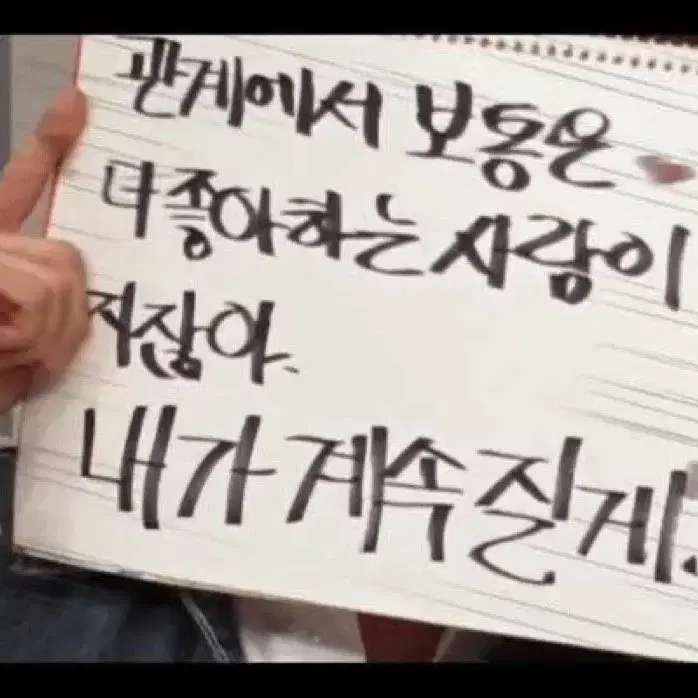 관계에서 보통은
더 좋아하는 사람이
지잖아.
내가 계속 질게!